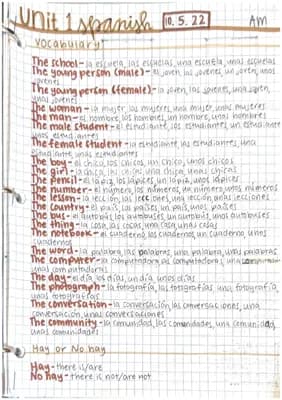 Unit 1 Spanish 10.5.22 AM
Vocabulary
The school- la escuela, las escuelas, una escuela, unas escuelas
The young person (male)- el joven, los jovenes, un joven, unos
jovenes
The young person (female)- la joven, las jovenes, una joven,
unas jovenes
The woman- la mujer, las mujeres, una mujer, unas mujeres
The man- el hombre, los hombres, un hombre, unos hombres
The male student- el estudiante, los estudiantes, un estudiante
unos estudiantes
The female student- la estudiante, las estudiantes, una
estudiante, unas estudiantes
The boy- el chico, los chicos, un chico, unos chicos
The girl- la chica, las chicas, una chica, unas chicas
The pencil- el lápiz, los lápices, un lápiz, unos lápices
The number- el número, los números, un número, unos números
The lesson- la lección, las lecciones, una lección, unas lecciones
The country- el país, los países, un país, unos países
The bus- el autobús, los autobuses, un autobús, unos autobuses
The thing- la cosa, las cosas, una cosa, unas cosas
The notebook- el cuaderno, los cuadernos, un cuaderno, unos
cuadernos
The word- la palabra, las palabras, una palabra, unas palabras
The computer- la computadora, las computadoras, una
unas computadoras
The day- el día, los días, un día, unos días
The photograph- la fotografía, las fotografías, una fotografía,
unas fotografías
The conversation- la conversación, las conversaciones, una
conversación, unas conversaciones
The community- la comunidad, las comunidades, una comunidad,
unas comunidades
Hay or No hay
Hay- there is/are
No hay- there is not/are not